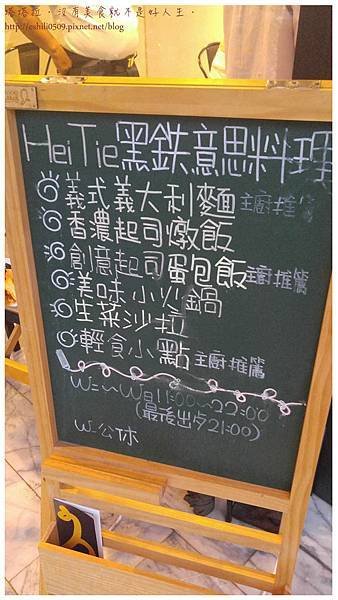 塔塔拉。沒有美食就不是好人生。
http://eshili0509.pixnet.net/blog
HeiTie黑鉄意思料理
義式義大利麵 主廚推篶
香濃起司燉飯
創意起司蛋包飯 主廚推篶
美味小火鍋
生菜沙拉
輕食小點 主廚推篶
W二～W日11:00～22:00
(最後出夕21:00)
W一公休